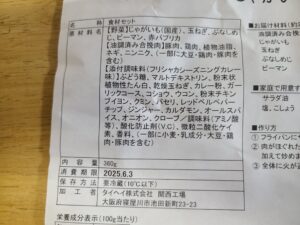 名称 食材セット
原材料名 【野菜】じゃがいも(国産)、玉ねぎ、ぶなしめ
じ、ピーマン、赤パプリカ
【油調済み合挽肉】豚肉、鶏肉、植物油脂、
ネギ、ニンニク、(一部に大豆・鶏肉・豚
肉を含む)
【添付調味料(フリシャカシーズニングカレー
味)】ぶどう糖、マルトデキストリン、粉末状
植物性たん白、乾燥玉ねぎ、カレー粉、ガ
ーリックコース、コショウ、ウコン、粉末チキン
ブイヨン、クミン、パセリ、レッドベルペパー
チップ、ジンジャー、カルダモン、オールスパ
イス、オニオン、クローブ/調味料(アミノ酸
等)、酸化防止剤(V.C)、微粒二酸化ケイ
素、香料、(一部に小麦・乳成分・大豆・鶏
肉・豚肉を含む)
内容量 360g
消費期限 2025.6.3
保存方法 要冷蔵(10℃以下)
製造者 タイヘイ株式会社 関西工場
大阪府寝屋川市池田新町23-23
栄養成分表示(100g当たり)
■お届け材料
じゃがいも
玉ねぎ
ぶなしめじ
ピーマン
■家庭で用意す
サラダ油
塩、こしょう
■作り方
① フライパンに
② 肉がほぐれた
加えて炒め
③ 全体に火が